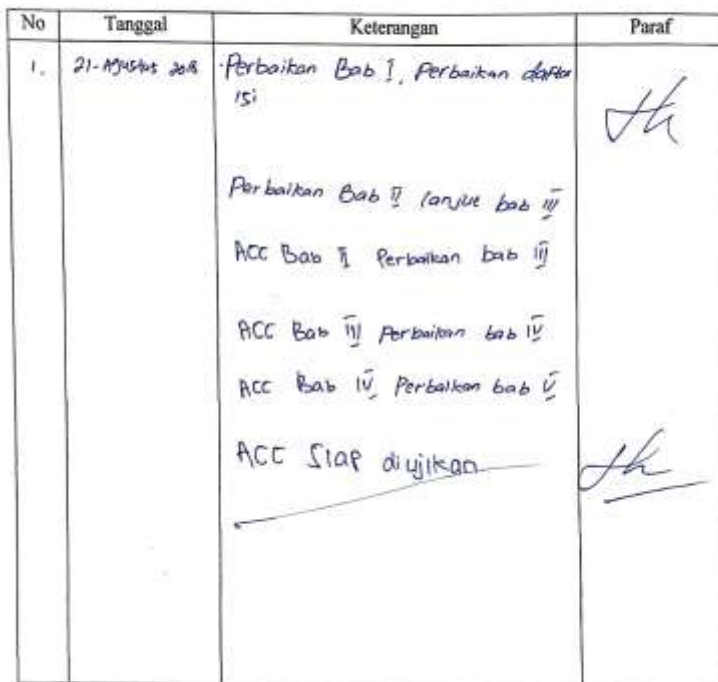 No Tanggal Keterangan Paraf
1. 21-Agustus 2018 Perbaikan Bab I, Perbaikan daftar
isi
Perbaikan Bab II lanjut bab III
ACC Bab II Perbaikan bab III
ACC Bab III Perbaikan bab IV
ACC Bab IV Perbaikan bab V
ACC Siap diujikan